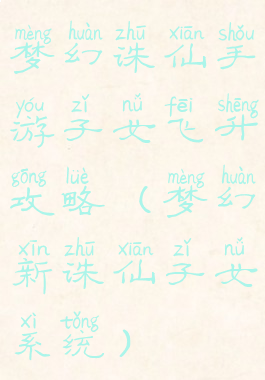 mèng huàn zhū xiān shǒu
梦幻诛仙手
yóu zǐ nǚ fēi shēng
游子女飞升
gōng lüè mèng huàn
攻略（梦幻
xīn zhū xiān zǐ nǚ
新诛仙子女
xì tǒng
系统）